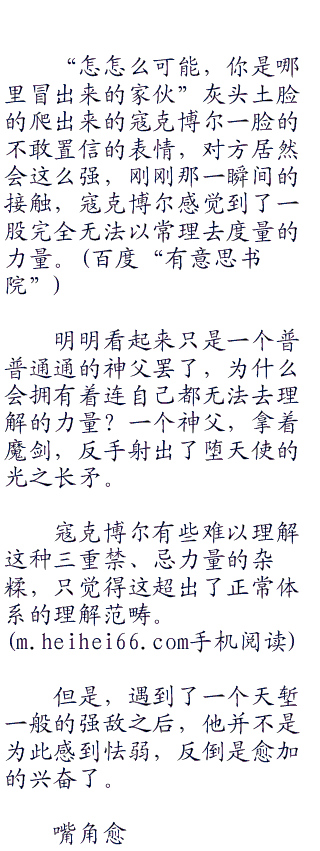 “怎怎么可能，你是哪
里冒出来的家伙”灰头土脸
的爬出来的寇克博尔一脸的
不敢置信的表情，对方居然
会这么强，刚刚那一瞬间的
接触，寇克博尔感觉到了一
股完全无法以常理去度量的
力量。(百度“有意思书
院”)
明明看起来只是一个普
普通通的神父罢了，为什么
会拥有着连自己都无法去理
解的力量？一个神父，拿着
魔剑，反手射出了堕天使的
光之长矛。
寇克博尔有些难以理解
这种三重禁、忌力量的杂
糅，只觉得这超出了正常体
系的理解范畴。
(m.heihei66.com手机阅读)
但是，遇到了一个天堑
一般的强敌之后，他并不是
为此感到怯弱，反倒是愈加
的兴奋了。
嘴角愈